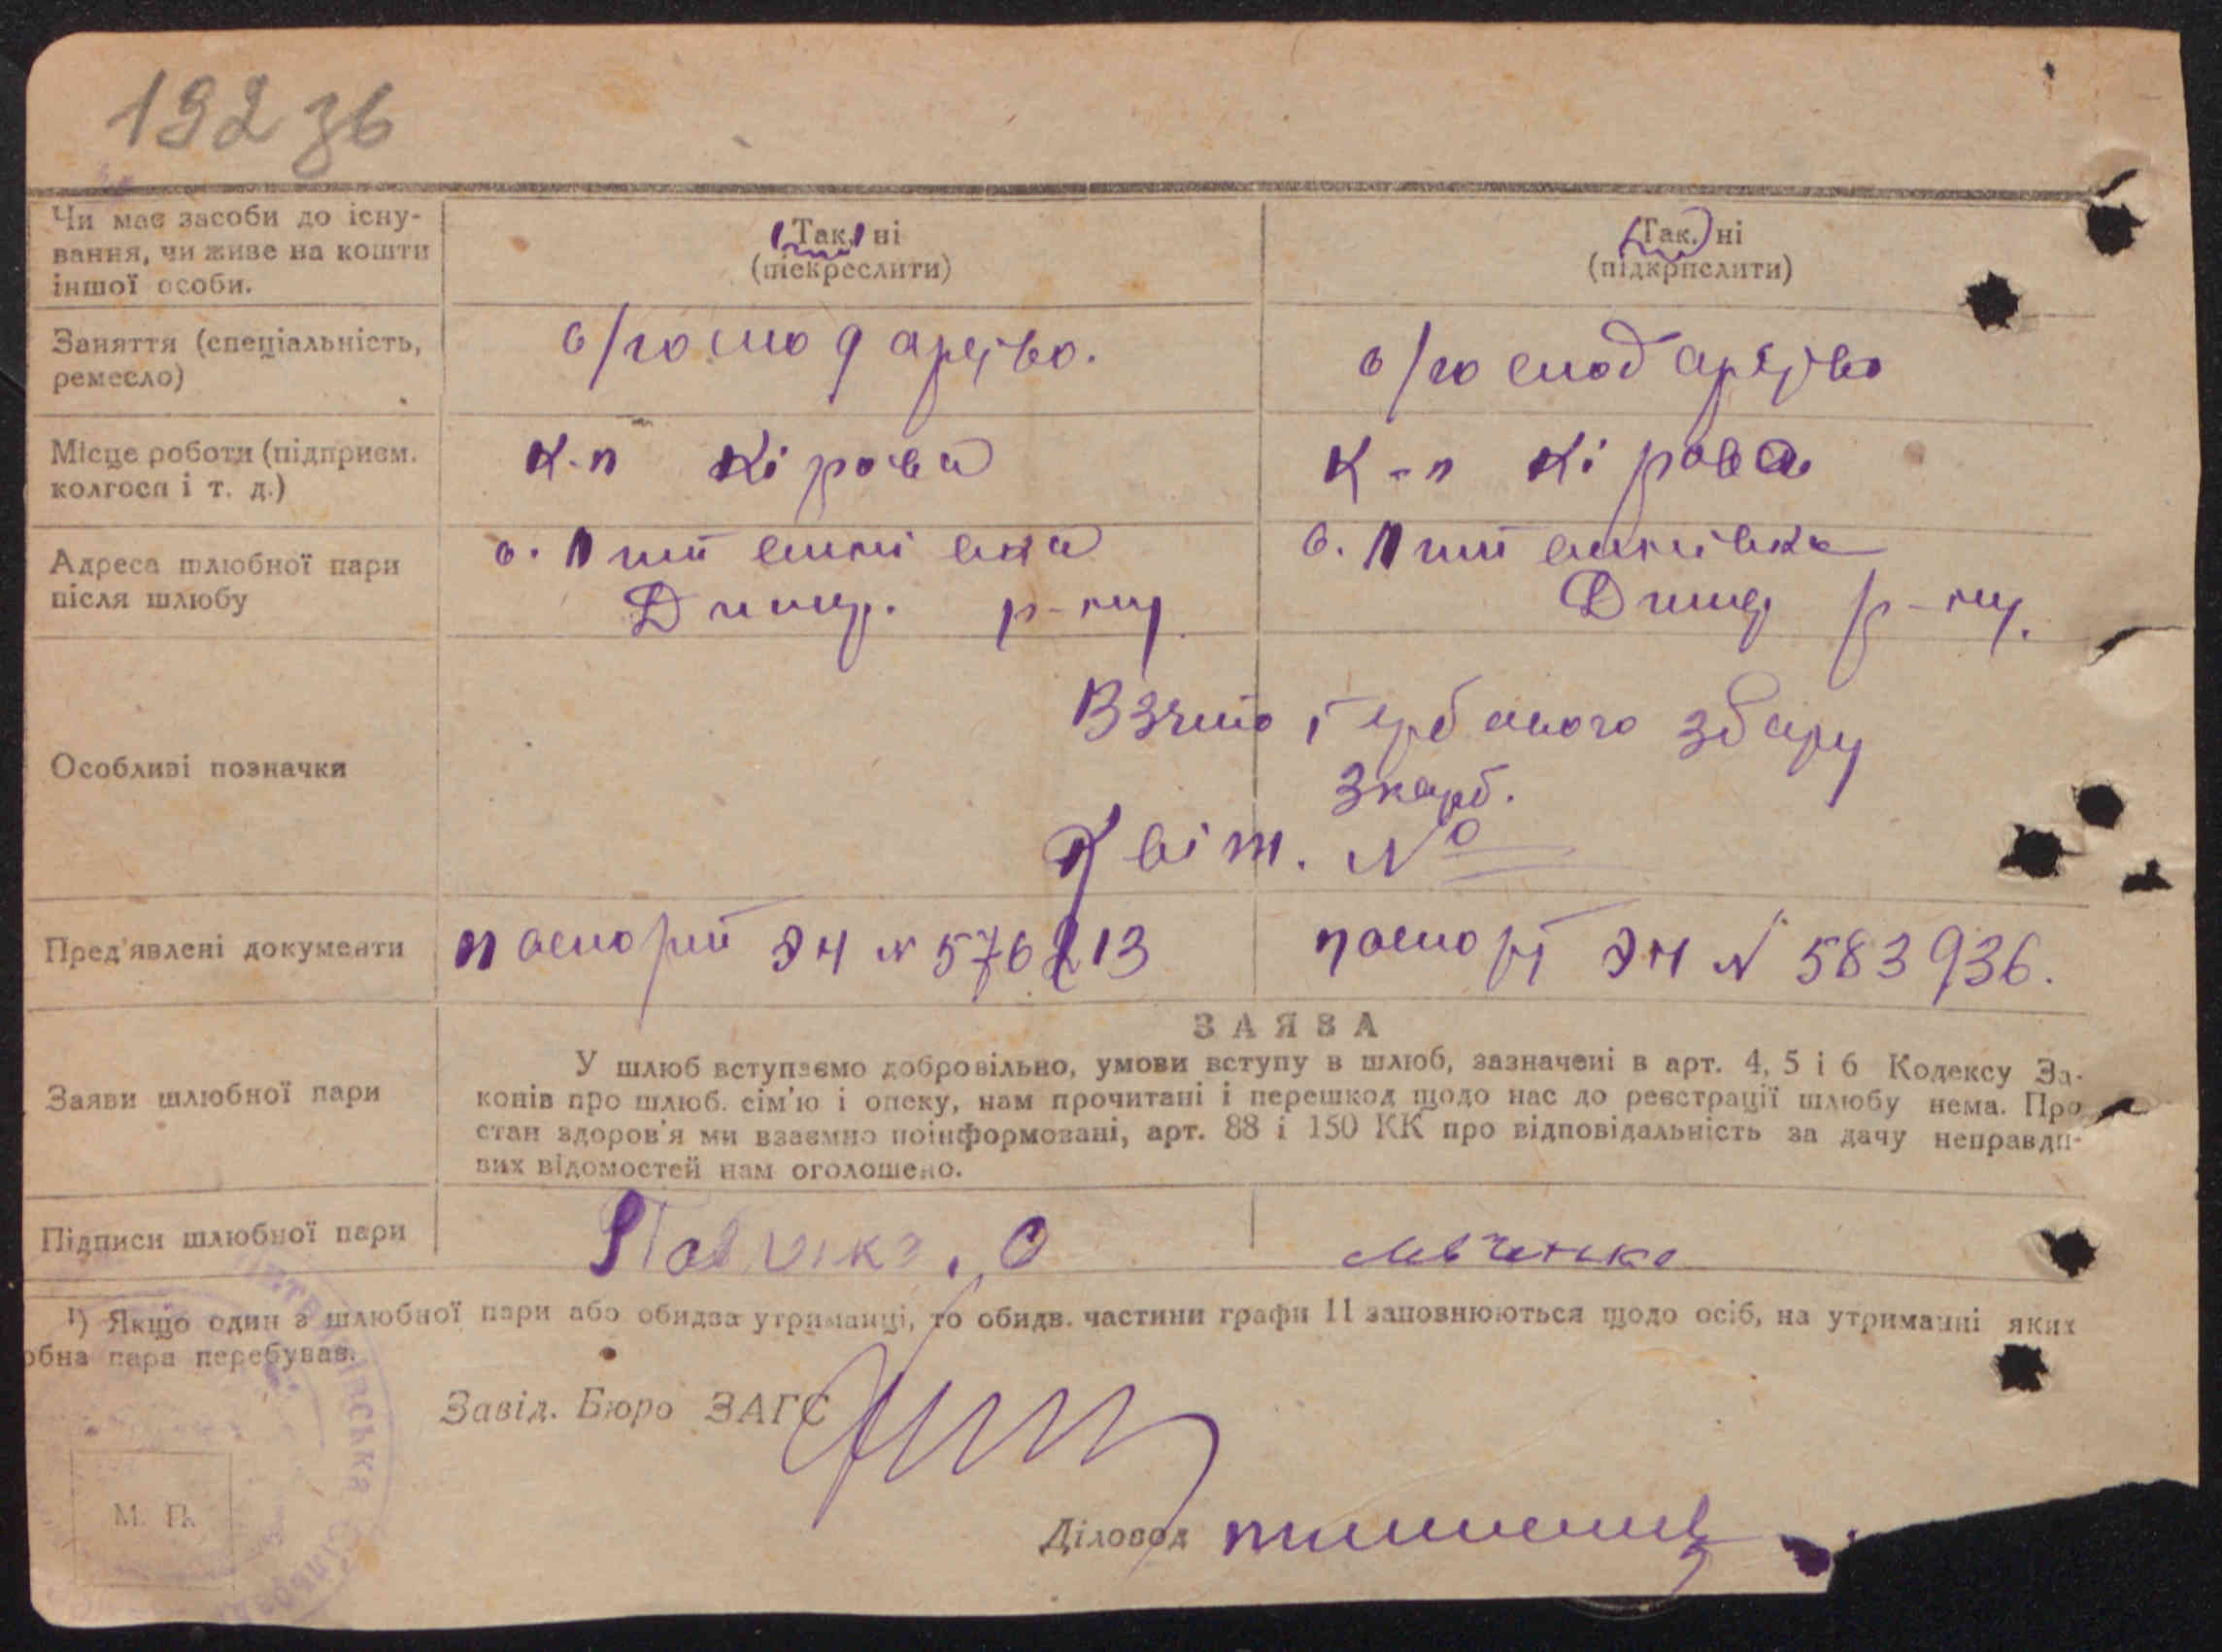 192 зв
Чи має засоби до існу-
вання, чи живе на кошти
іншої особи.
Так, ні
(піскреслити)
Так, ні
(підкрпслити)
Заняття (спеціальність,
ремесло)
с/господарство.
с/господарство
Місце роботи (підприєм.
колгосп і т. д.)
К-п Кірова
К-п Кірова
Адреса шлюбної пари
після шлюбу
с.
р-ну
с.
р-ну.
Особливі позначки
Взято Гербового збору
3 карб.
Квіт. №
Пред'явлені документи
паспорт ЭЧ № 576213
паспорт ЭЧ № 583936.
Заяви шлюбної пари
ЗАЯВА
У шлюб вступаємо добровільно, умови вступу в шлюб, зазначені в арт. 4, 5 і 6 Кодексу За-
конів про шлюб. сім'ю і опеку, нам прочитані і перешкод щодо нас до реєстрації шлюбу нема. Про
стан здоров'я ми взаємно поінформовані, арт. 88 і 150 КК про відповідальність за дачу неправди-
вих відомостей нам оголошено.
Підписи шлюбної пари
¹) Якщо один з шлюбної пари або обидва утриманці, то обидв. частини графи 11 заповнюються щодо осіб, на утриманні яких
обна пара перебував.
Завід. Бюро ЗАГС
М. П.
Діловод